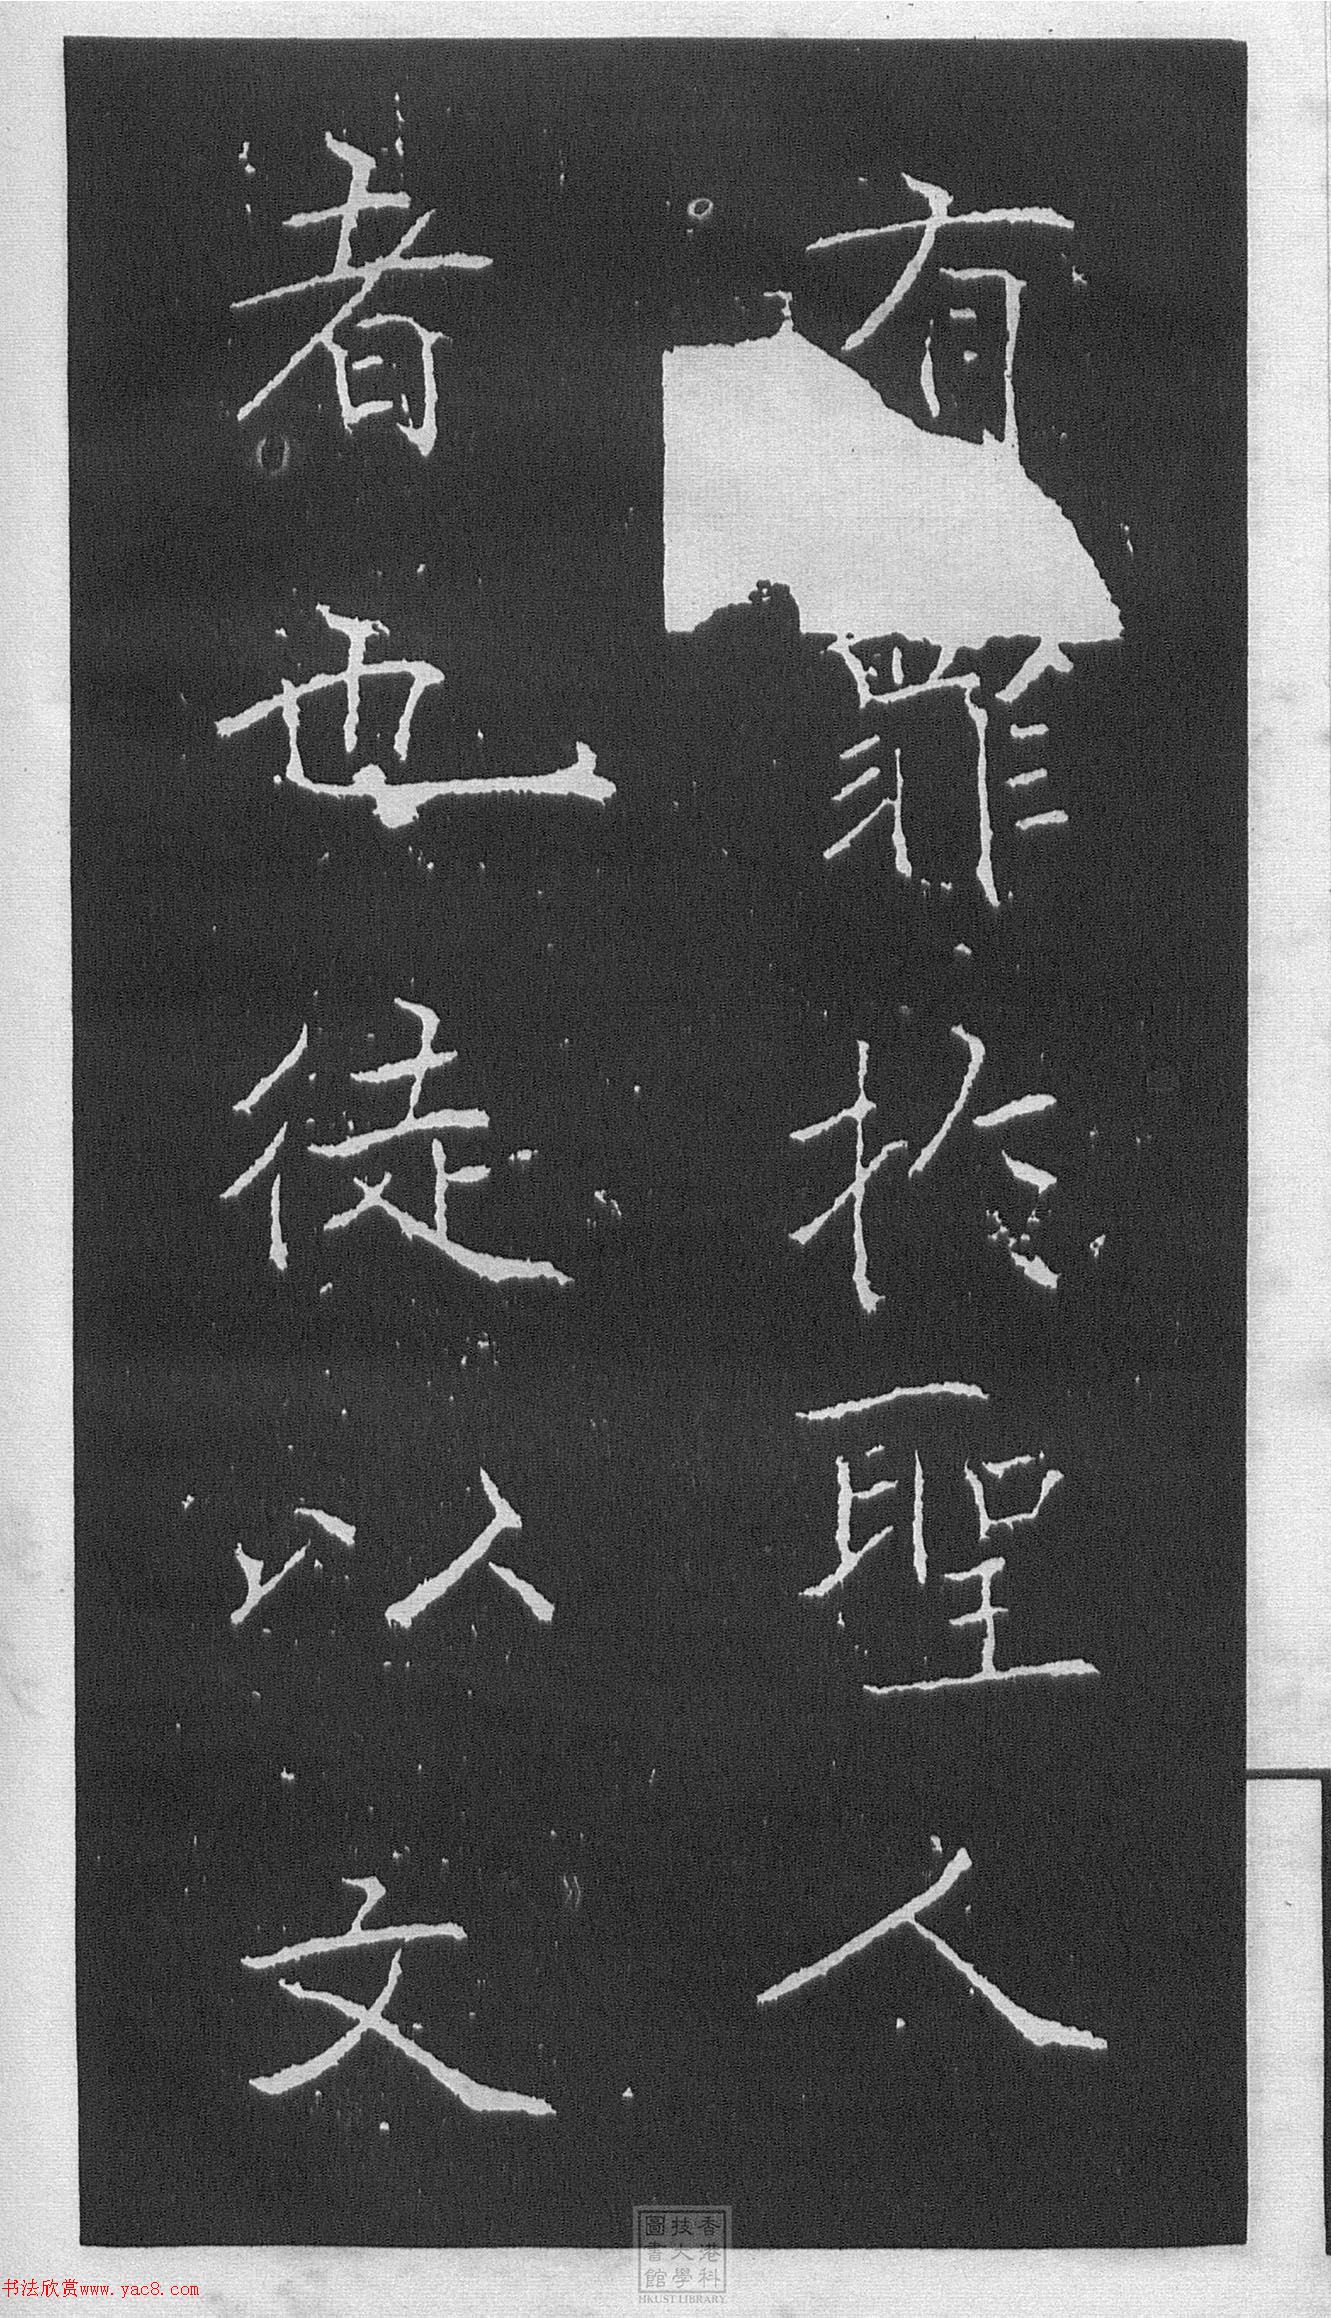 有罪於聖人
者也徒以文
香港科
技大學
圖書館
HKUST LIBRARY
书法欣赏www.yac8.com